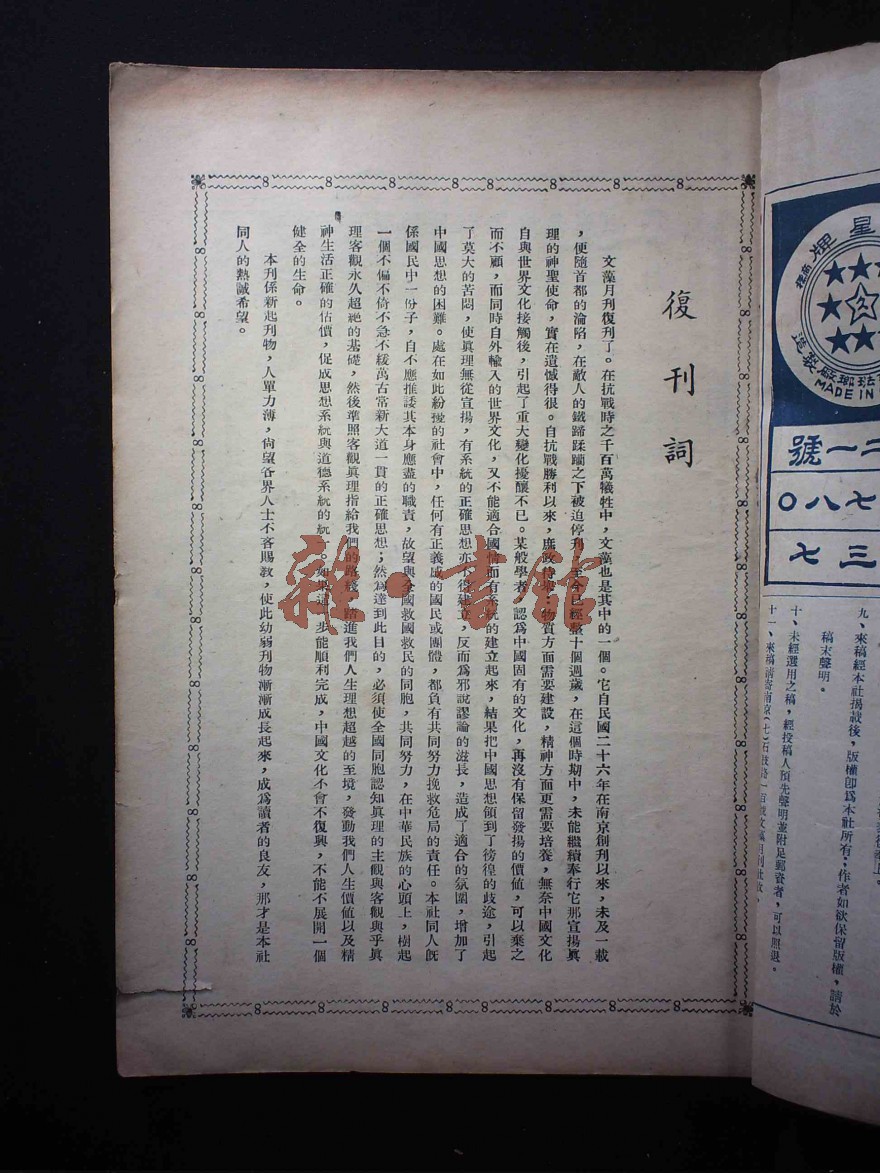 復刊詞
文藻月刊復刊了。在抗戰時之千百萬犧牲中，文藻也是其中的一個。它自民國二十六年在南京創刊以來，未及一載
，便隨首都的淪陷，在敵人的鐵蹄蹂躪之下被迫停刊，至今已經整十個週歲，在這個時期中，未能繼續奉行它那宣揚眞
理的神聖使命，實在遺憾得很。自抗戰勝利以來，庶政待舉：物質方面需要建設，精神方面更需要培養，無奈中國文化
自與世界文化接觸後，引起了重大變化擾釀不已。某般學者，認爲中國固有的文化，再沒有保留發揚的價値，可以棄之
而不顧，而同時自外輸入的世界文化，又不能適合國情而有系統的建立起來，結果把中國思想領到了徬徨的歧途，引起
了莫大的苦悶，使眞理無從宣揚，有系統的正確思想亦不得建立，反而爲邪說謬論的滋長，造成了適合的氛圍，增加了
中國思想的困難。處在如此紛擾的社會中，任何有正義感的國民或團體，都負有共同努力挽救危局的責任。本社同人旣
係國民中一份子，自不應推諉其本身應盡的職責，故望與全國救國救民的同胞，共同努力，在中華民族的心頭上，樹起
一個不偏不倚不急不緩萬古常新大道一貫的正確思想；然爲達到此目的，必須使全國同胞認知眞理的主觀與客觀與乎眞
理客觀永久超絕的基礎，然後準照客觀眞理指給我們的路綫，踏進我們人生理想超越的至境，發動我們人生價値以及精
神生活正確的估價，促成思想系統與道德系統的統一。如果這一步能順利完成，中國文化不會不復興，不能不展開一個
健全的生命。
本刊係新起刊物，人單力薄，尙望各界人士不吝賜敎，使此幼弱刊物漸漸成長起來，成爲讀者的良友，那才是本社
同人的熱誠希望。
雜·書館
星牌
商標
琺瑯廠製造
MADE IN
二一號
七八〇
三七
九、來稿經本社揭載後，版權卽爲本社所有；作者如欲保留版權，請於
稿末聲明。
十、未經選用之稿，經投稿人預先聲明並附足郵資者，可以照退。
十一、來稿請寄南京(七)石鼓路一百